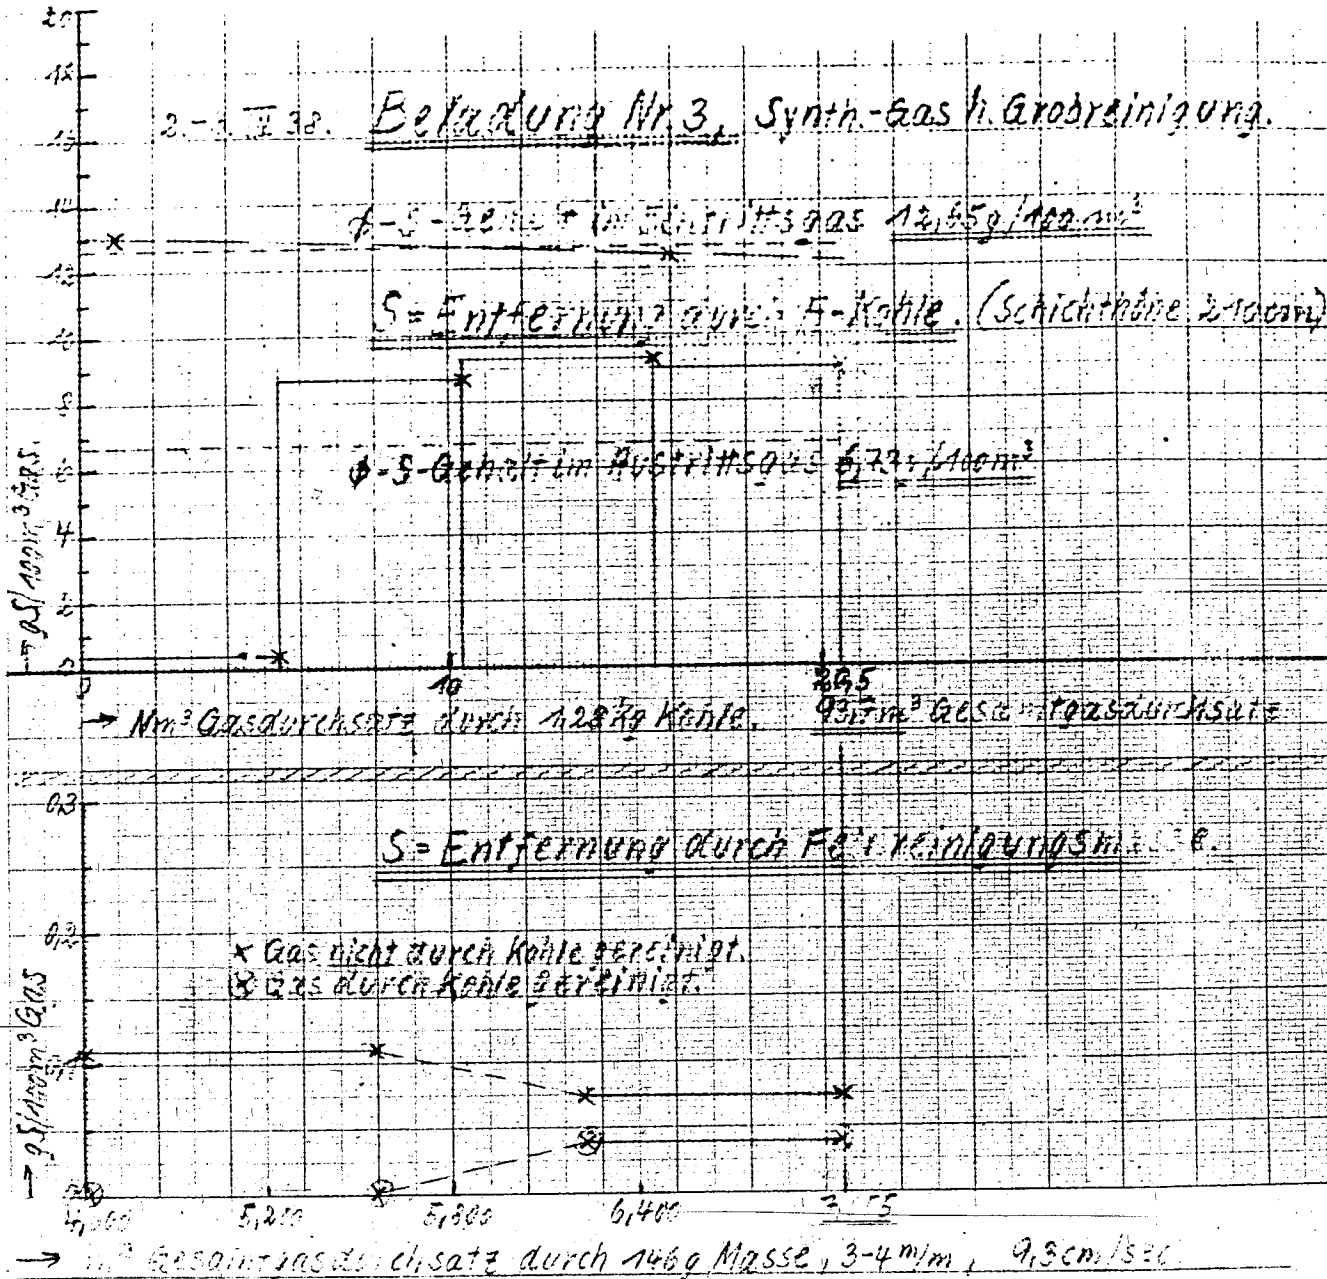 20
18
2.-3. 38. Beladung Nr. 3, Synth.-Gas h. Grobreinigung.
14
ϕ-S-Gehalt im Eintrittsgas 12,65g/100 m³
12
S=Entfernung durch A-Kohle. (Schichthöhe 2·100cm)
10
8
ϕ-S-Gehalt im Austrittsgas 6,73g/100m³
6
4
2
0
→ gS/100m³ Gas.
0 10 20,5
→ Nm³ Gasdurchsatz durch 1,28 kg Kohle. m³ Gesamtgasdurchsatz
0,3
S=Entfernung durch Feinreinigungsmasse.
0,2
x Gas nicht durch Kohle gereinigt.
⊗ Gas durch Kohle gereinigt.
0,1
→ gS/100m³ Gas
0
5,200 5,800 6,400
→ m³ Gesamtgasdurchsatz durch 146g Masse, 3-4 m/m, 9,3cm/sec.